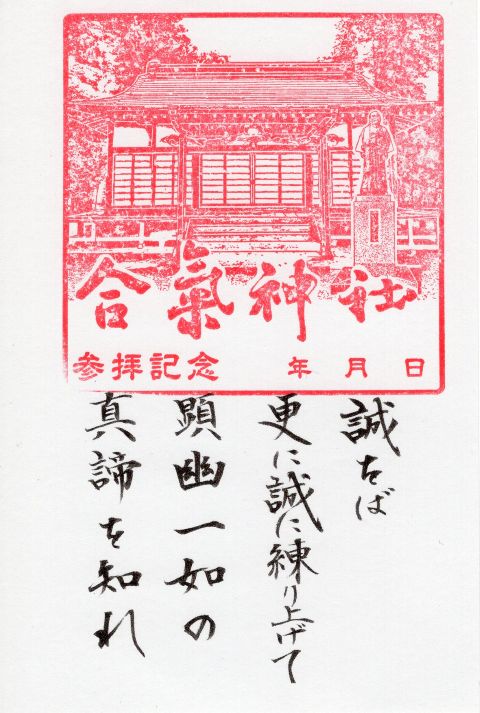 合氣神社
参拝記念　年　月　日
誠をば
更に誠に練り上げて
顕幽一如の
真諦を知れ